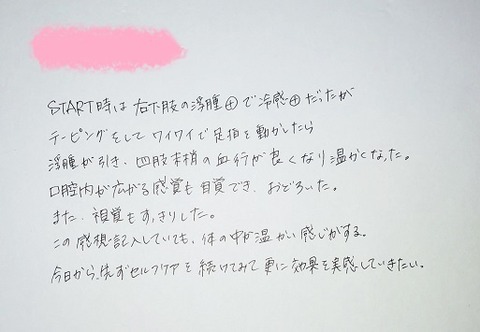 START時は 右下肢の浮腫⊕で冷感⊕だったが
テーピングをして ワイワイで足指を動かしたら
浮腫が引き、四肢末梢の血行が良くなり温かくなった。
口腔内が広がる感覚も自覚でき、おどろいた。
また、視覚もすっきりした。
この感想記入していても、体の中が温かい感じがする。
今日から、先ずセルフケアを続けてみて更に効果を実感していきたい。